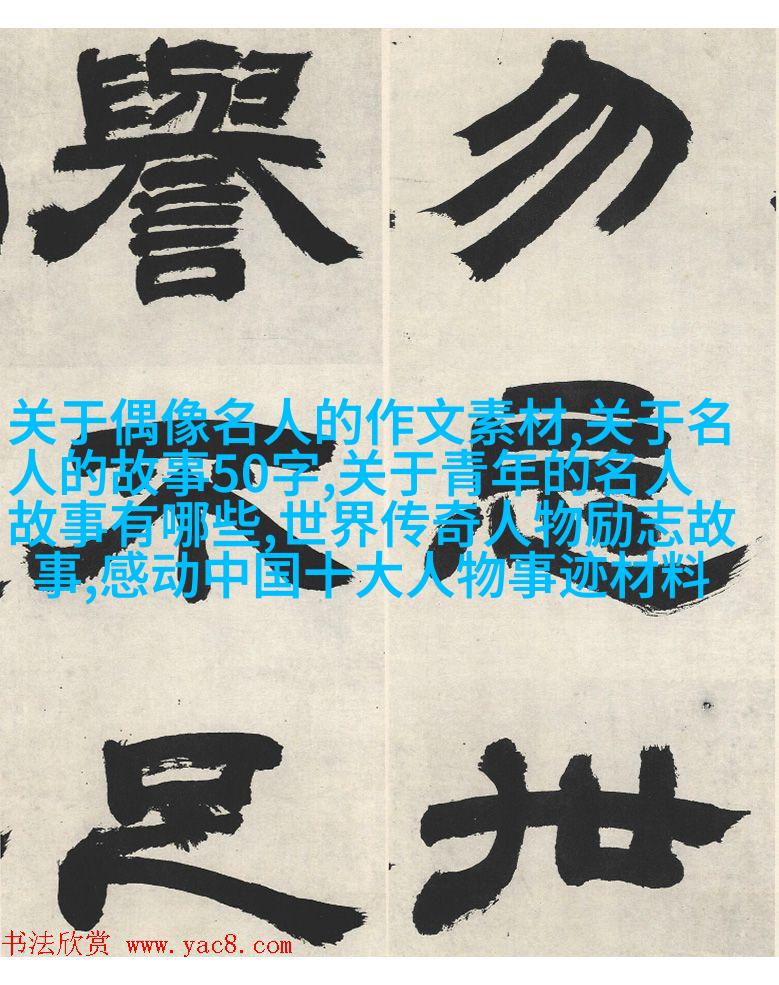 勿忘世
譽不足
关于偶像名人的作文素材,关于名
人的故事50字,关于青年的名人
故事有哪些,世界传奇人物励志故
事,感动中国十大人物事迹材料
书法欣赏 www.yac8.com